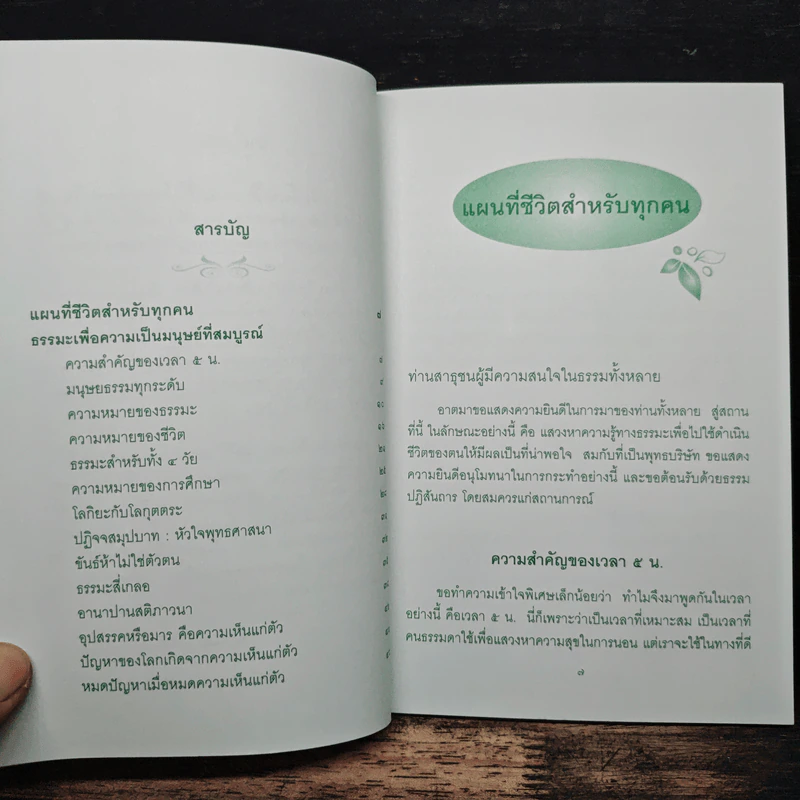 สารบัญ
แผนที่ชีวิตสำหรับทุกคน ๗
ธรรมะเพื่อความเป็นมนุษย์ที่สมบูรณ์
ความสำคัญของเวลา ๕ น.
มนุษยธรรมทุกระดับ
ความหมายของธรรมะ ๑๐
ความหมายของชีวิต
ธรรมะสำหรับทั้ง ๔ วัย
ความหมายของการศึกษา
โลกิยะกับโลกุตตระ
ปฏิจจสมุปบาท : หัวใจพุทธศาสนา
ขันธ์ห้าไม่ใช่ตัวตน
ธรรมะสี่เกลอ
อานาปานสติภาวนา
อุปสรรคหรือมาร คือความเห็นแก่ตัว
ปัญหาของโลกเกิดจากความเห็นแก่ตัว
หมดปัญหาเมื่อหมดความเห็นแก่ตัว
แผนที่ชีวิตสำหรับทุกคน
ท่านสาธุชนผู้มีความสนใจในธรรมทั้งหลาย
อาตมาขอแสดงความยินดีในการมาของท่านทั้งหลาย สู่สถาน
ที่นี้ ในลักษณะอย่างนี้ คือ แสวงหาความรู้ทางธรรมะเพื่อไปใช้ดำเนิน
ชีวิตของตนให้มีผลเป็นที่น่าพอใจ สมกับที่เป็นพุทธบริษัท ขอแสดง
ความยินดีอนุโมทนาในการกระทำอย่างนี้ และขอต้อนรับด้วยธรรม
ปฏิสันถาร โดยสมควรแก่สถานการณ์
ความสำคัญของเวลา ๕ น.
ขอทำความเข้าใจพิเศษเล็กน้อยว่า ทำไมจึงมาพูดกันในเวลา
อย่างนี้ คือเวลา ๕ น. นี่ก็เพราะว่าเป็นเวลาที่เหมาะสม เป็นเวลาที่
คนธรรมดาใช้เพื่อแสวงหาความสุขในการนอน แต่เราจะใช้ในทางที่ดี
๗